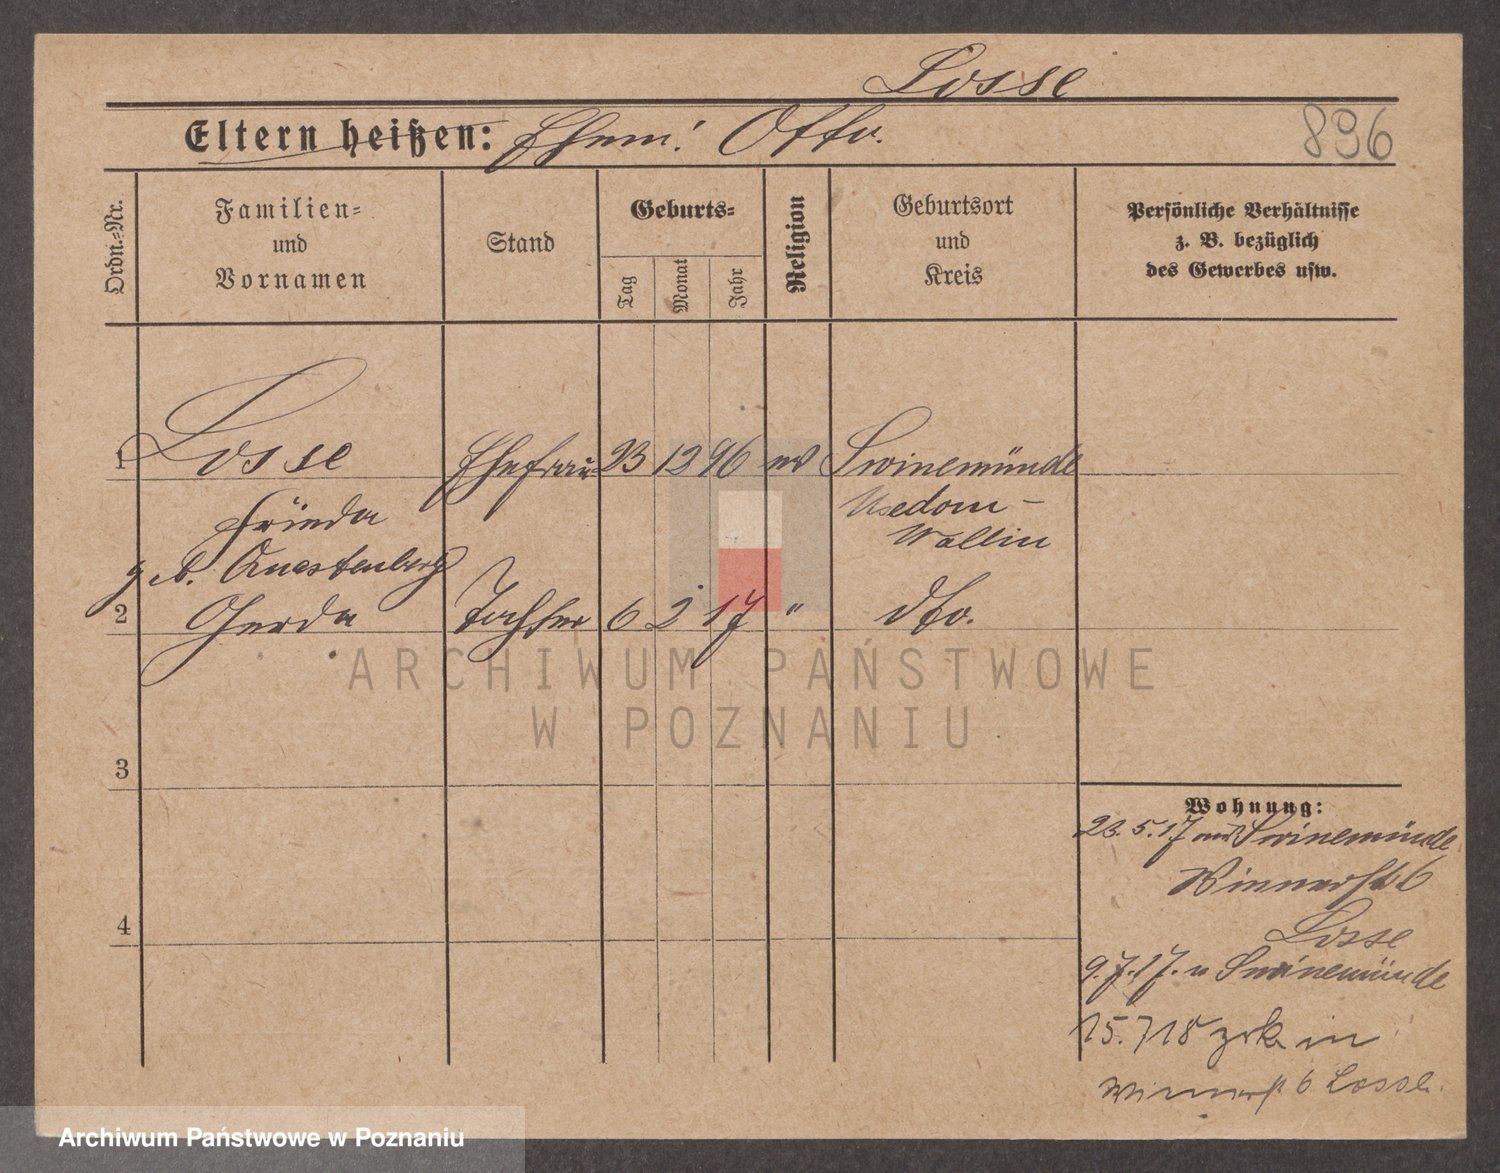 Losse
Eltern heißen: Ehem: Otto.
896
Ordn.=Nr.
Familien=
und
Vornamen
Stand
Geburts=
Tag
Monat
Jahr
Religion
Geburtsort
und
Kreis
Persönliche Verhältnisse
z. B. bezüglich
des Gewerbes usw.
1 Losse Ehefrau 23 12 96 ev Swinemünde
Frieda Usedom-
Wollin
geb. Questenberg
2 Gerda Tochter 6 2 17 " dto.
3
4
Wohnung:
23.5.17 aus Swinemünde
Winnerstr 6
Losse
9.7.17. n Swinemünde
15.7 18 zrk in
Winnerst 6 Losse.
ARCHIWUM PAŃSTWOWE
W POZNANIU
Archiwum Państwowe w Poznaniu